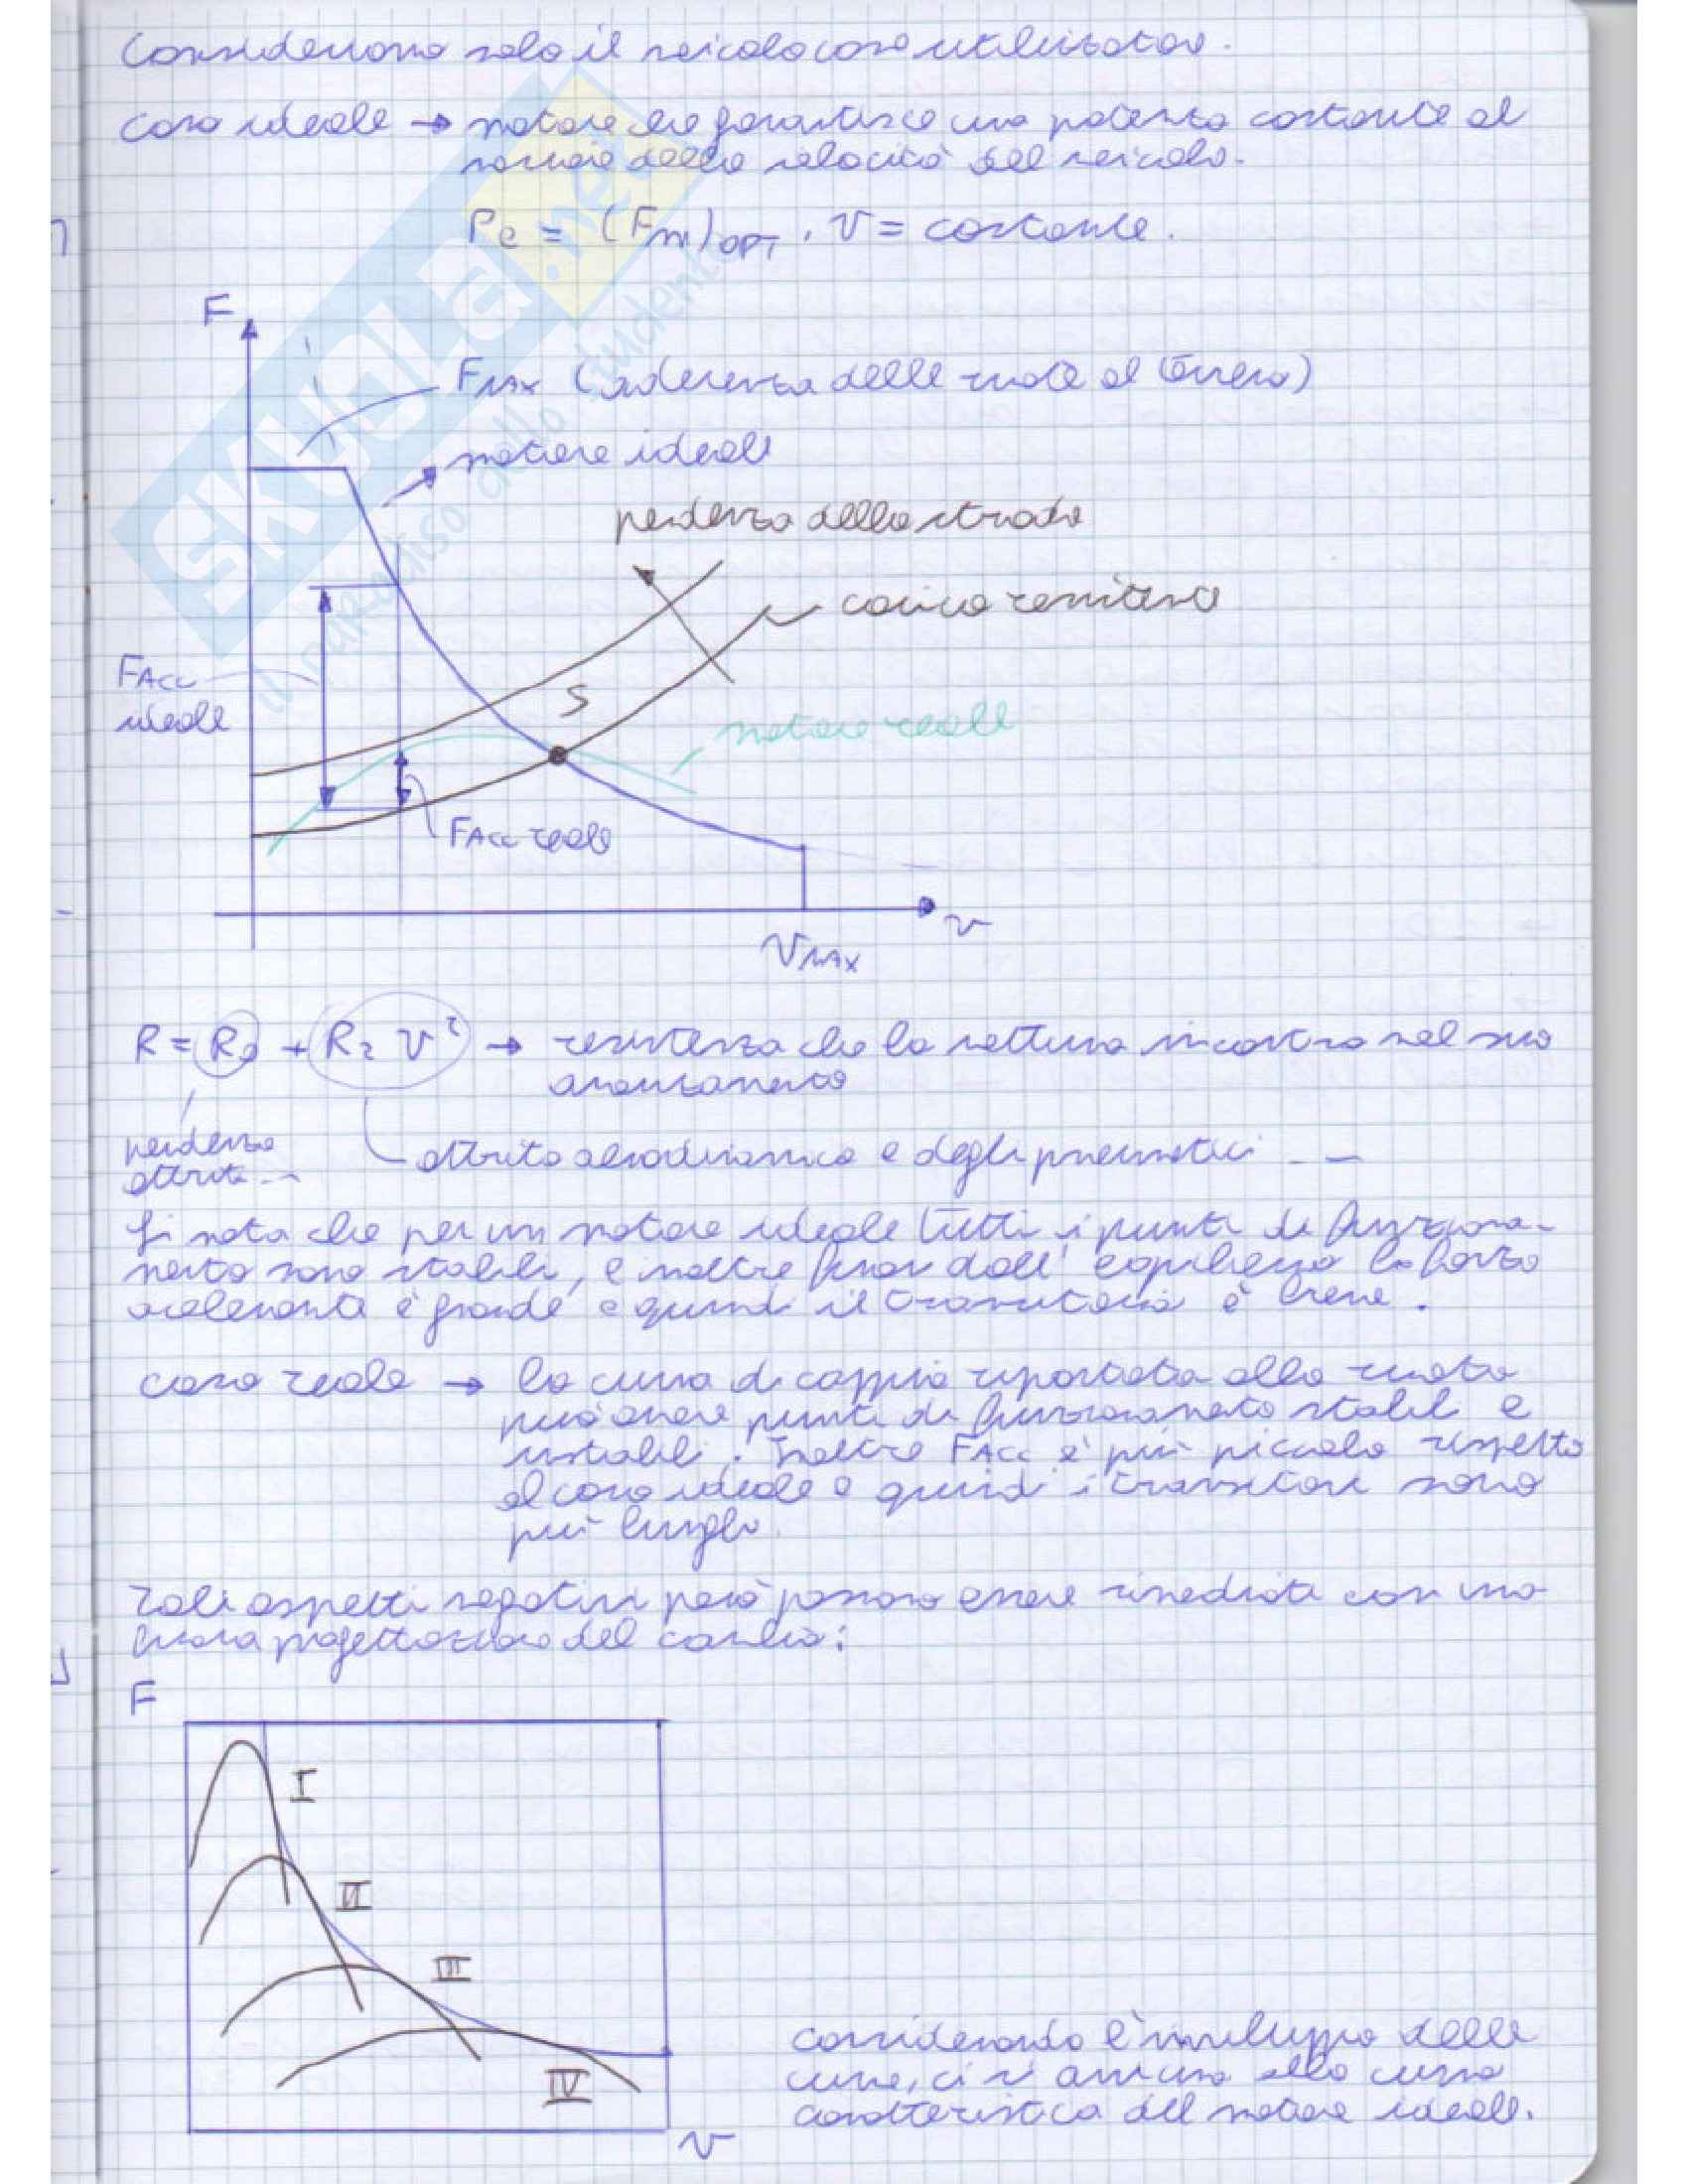 Consideriamo solo il veicolo come utilizzatore.
caso ideale → motore che garantisce una potenza costante al
variare della velocità del veicolo.
Pe = (Fm)OPT · V = costante.
F
FMAX (aderenza delle ruote al terreno)
motore ideale
pendenza della strada
carico resistente
FAcc
ideale
S
motore reale
FAcc reale
v
VMAX
R = R0 + R2 V² → resistenza che la vettura incontra nel suo
avanzamento
pendenza
attriti
attrito aerodinamico e degli pneumatici
Si nota che per un motore ideale tutti i punti di funziona-
mento sono stabili, e inoltre fuori dall' equilibrio la forza
accelerante è grande e quindi il transitorio è breve.
caso reale → la curva di coppia riportata alla ruota
può avere punti di funzionamento stabili e
instabili. Inoltre FAcc è più piccola rispetto
al caso ideale e quindi i transitori sono
più lunghi.
Tali aspetti negativi però possono essere rimediati con una
buona progettazione del cambio:
F
I
II
III
IV
v
considerando l'inviluppo delle
curve, ci si avvicina alla curva
caratteristica del motore ideale.
SKUOLA.net
il paradiso dello studente